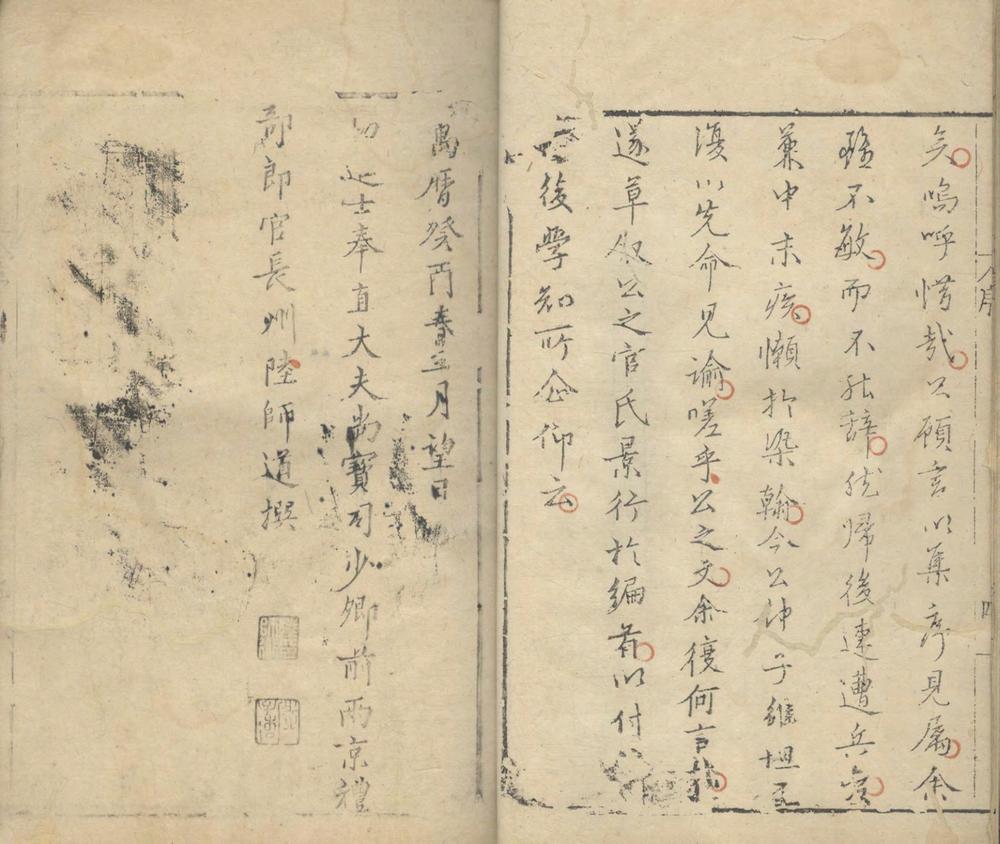 矣嗚呼惜哉公顧言以集序見屬余
雖不敏而不能辭然歸後連遭兵
兼中末疾懶於染翰今公仲子繼坦至
復以先命見諭嗟乎公之文余復何言哉
遂草叙公之官氏景行於編首以付
後學知所企仰云
萬曆癸丙春三月望日
進士奉直大夫尚寶司少卿前兩京禮
部郎官長州陸師道撰
序
四